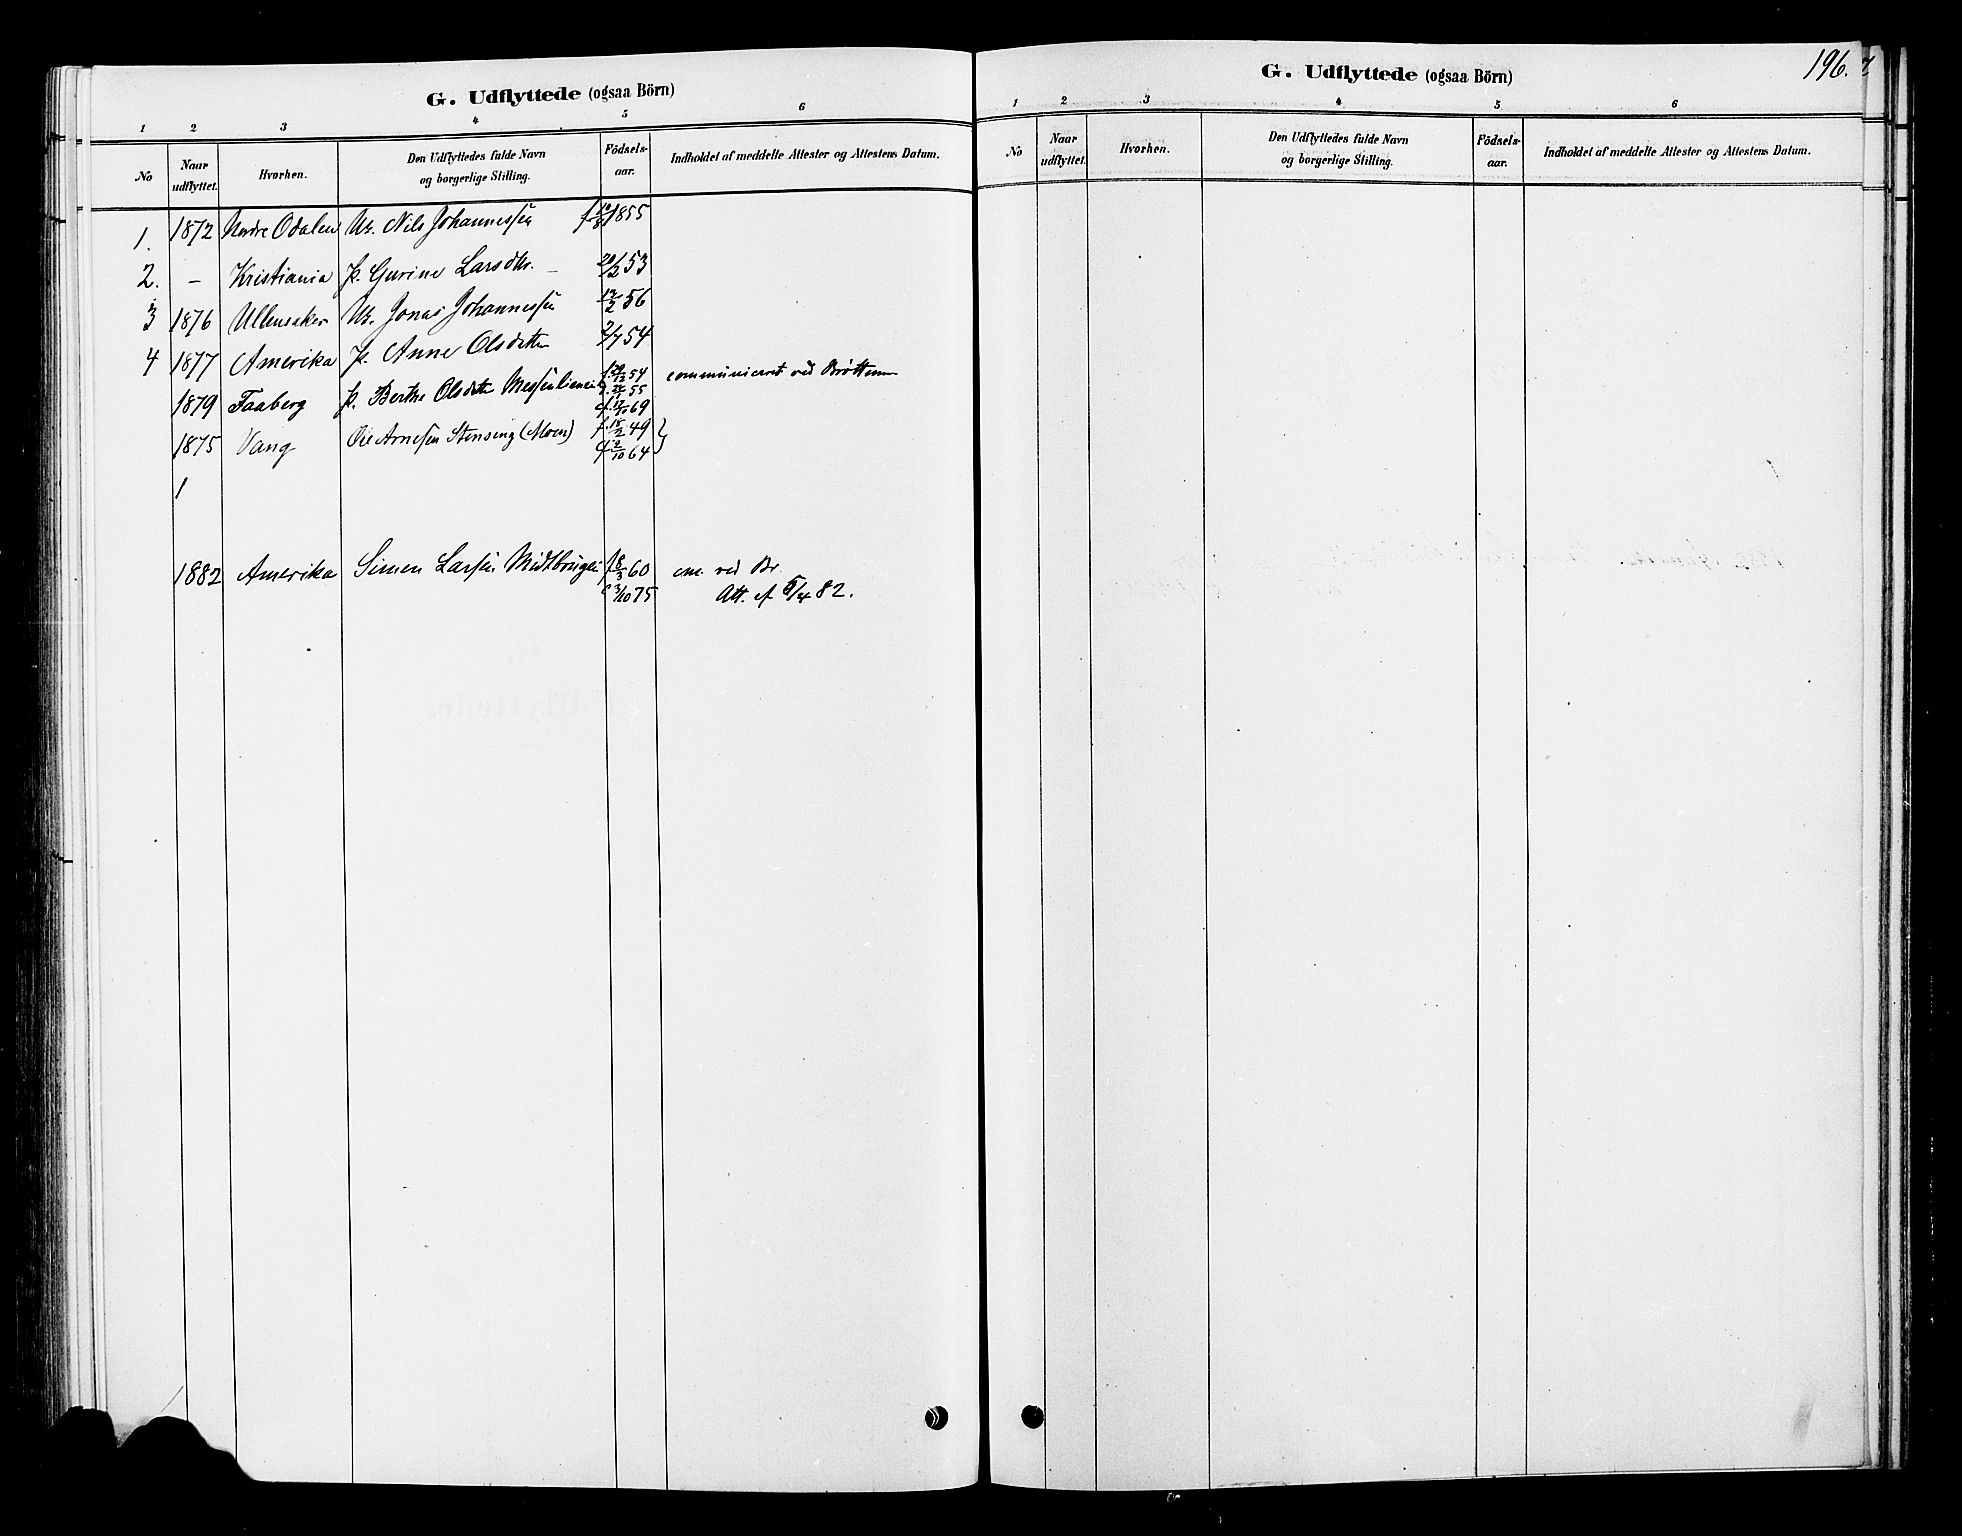 G. Udflyttede (ogsaa Börn)
1 2 3 4 5 6
No Naar udflyttet. Hvorhen. Den Udflyttedes fulde Navn og borgerlige Stilling. Födselsaar. Indholdet af meddelte Attester og Attestens Datum.
1. 1872 Nordre Odalen Nils Johannessen 1855
2. — Kristiania P. Gurine Larsdtr. 20/2 53
3 1876 Ullensaker Jonas Johannessen 12/2 56
4 1877 Amerika P. Anne Olsdatter 2/7 54
1879 Faaberg P. Berthe Olsdtr communiceret ved Brøttum
1875 Vang Ole Arnesen Stenseng (Moen) f. 18/2 49
/10 64
1
1882 Amerika Simen Larsen f 8/3 60 cm. ved Br.
c 3/10 75 Att. af 5/4 82.
196.
G. Udflyttede (ogsaa Börn)
1 2 3 4 5 6
No Naar udflyttet. Hvorhen. Den Udflyttedes fulde Navn og borgerlige Stilling. Födselsaar. Indholdet af meddelte Attester og Attestens Datum.